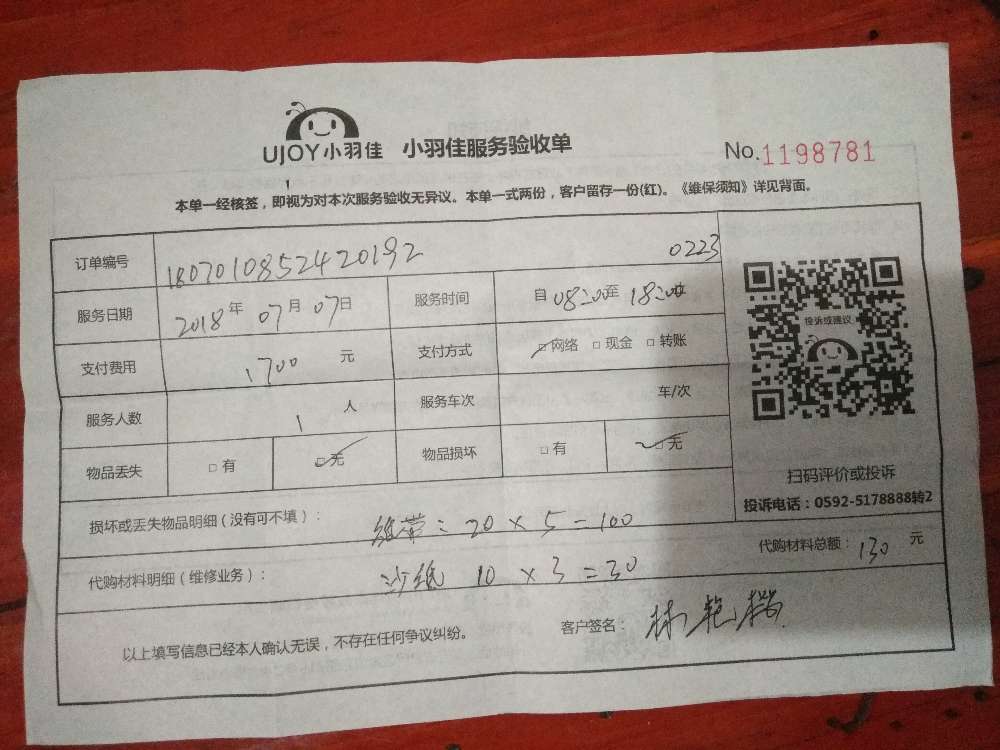 UJOY小羽佳 小羽佳服务验收单
No.1198781
本单一经核签，即视为对本次服务验收无异议。本单一式两份，客户留存一份(红)。《维保须知》详见背面。
订单编号 180701085242019​2 0223
服务日期 2018年07月07日 服务时间 自08:00至18:00
支付费用 1700元 支付方式 □网络 □现金 □转账
服务人数 1人 服务车次 车/次
物品丢失 □有 □无 物品损坏 □有 □无
投诉或建议
扫码评价或投诉
投诉电话：0592-5178888转2
损坏或丢失物品明细（没有可不填）： 绷带：20×5=100
代购材料明细（维修业务）： 沙纸 10×3=30
代购材料总额：130元
以上填写信息已经本人确认无误，不存在任何争议纠纷。
客户签名： 林艳